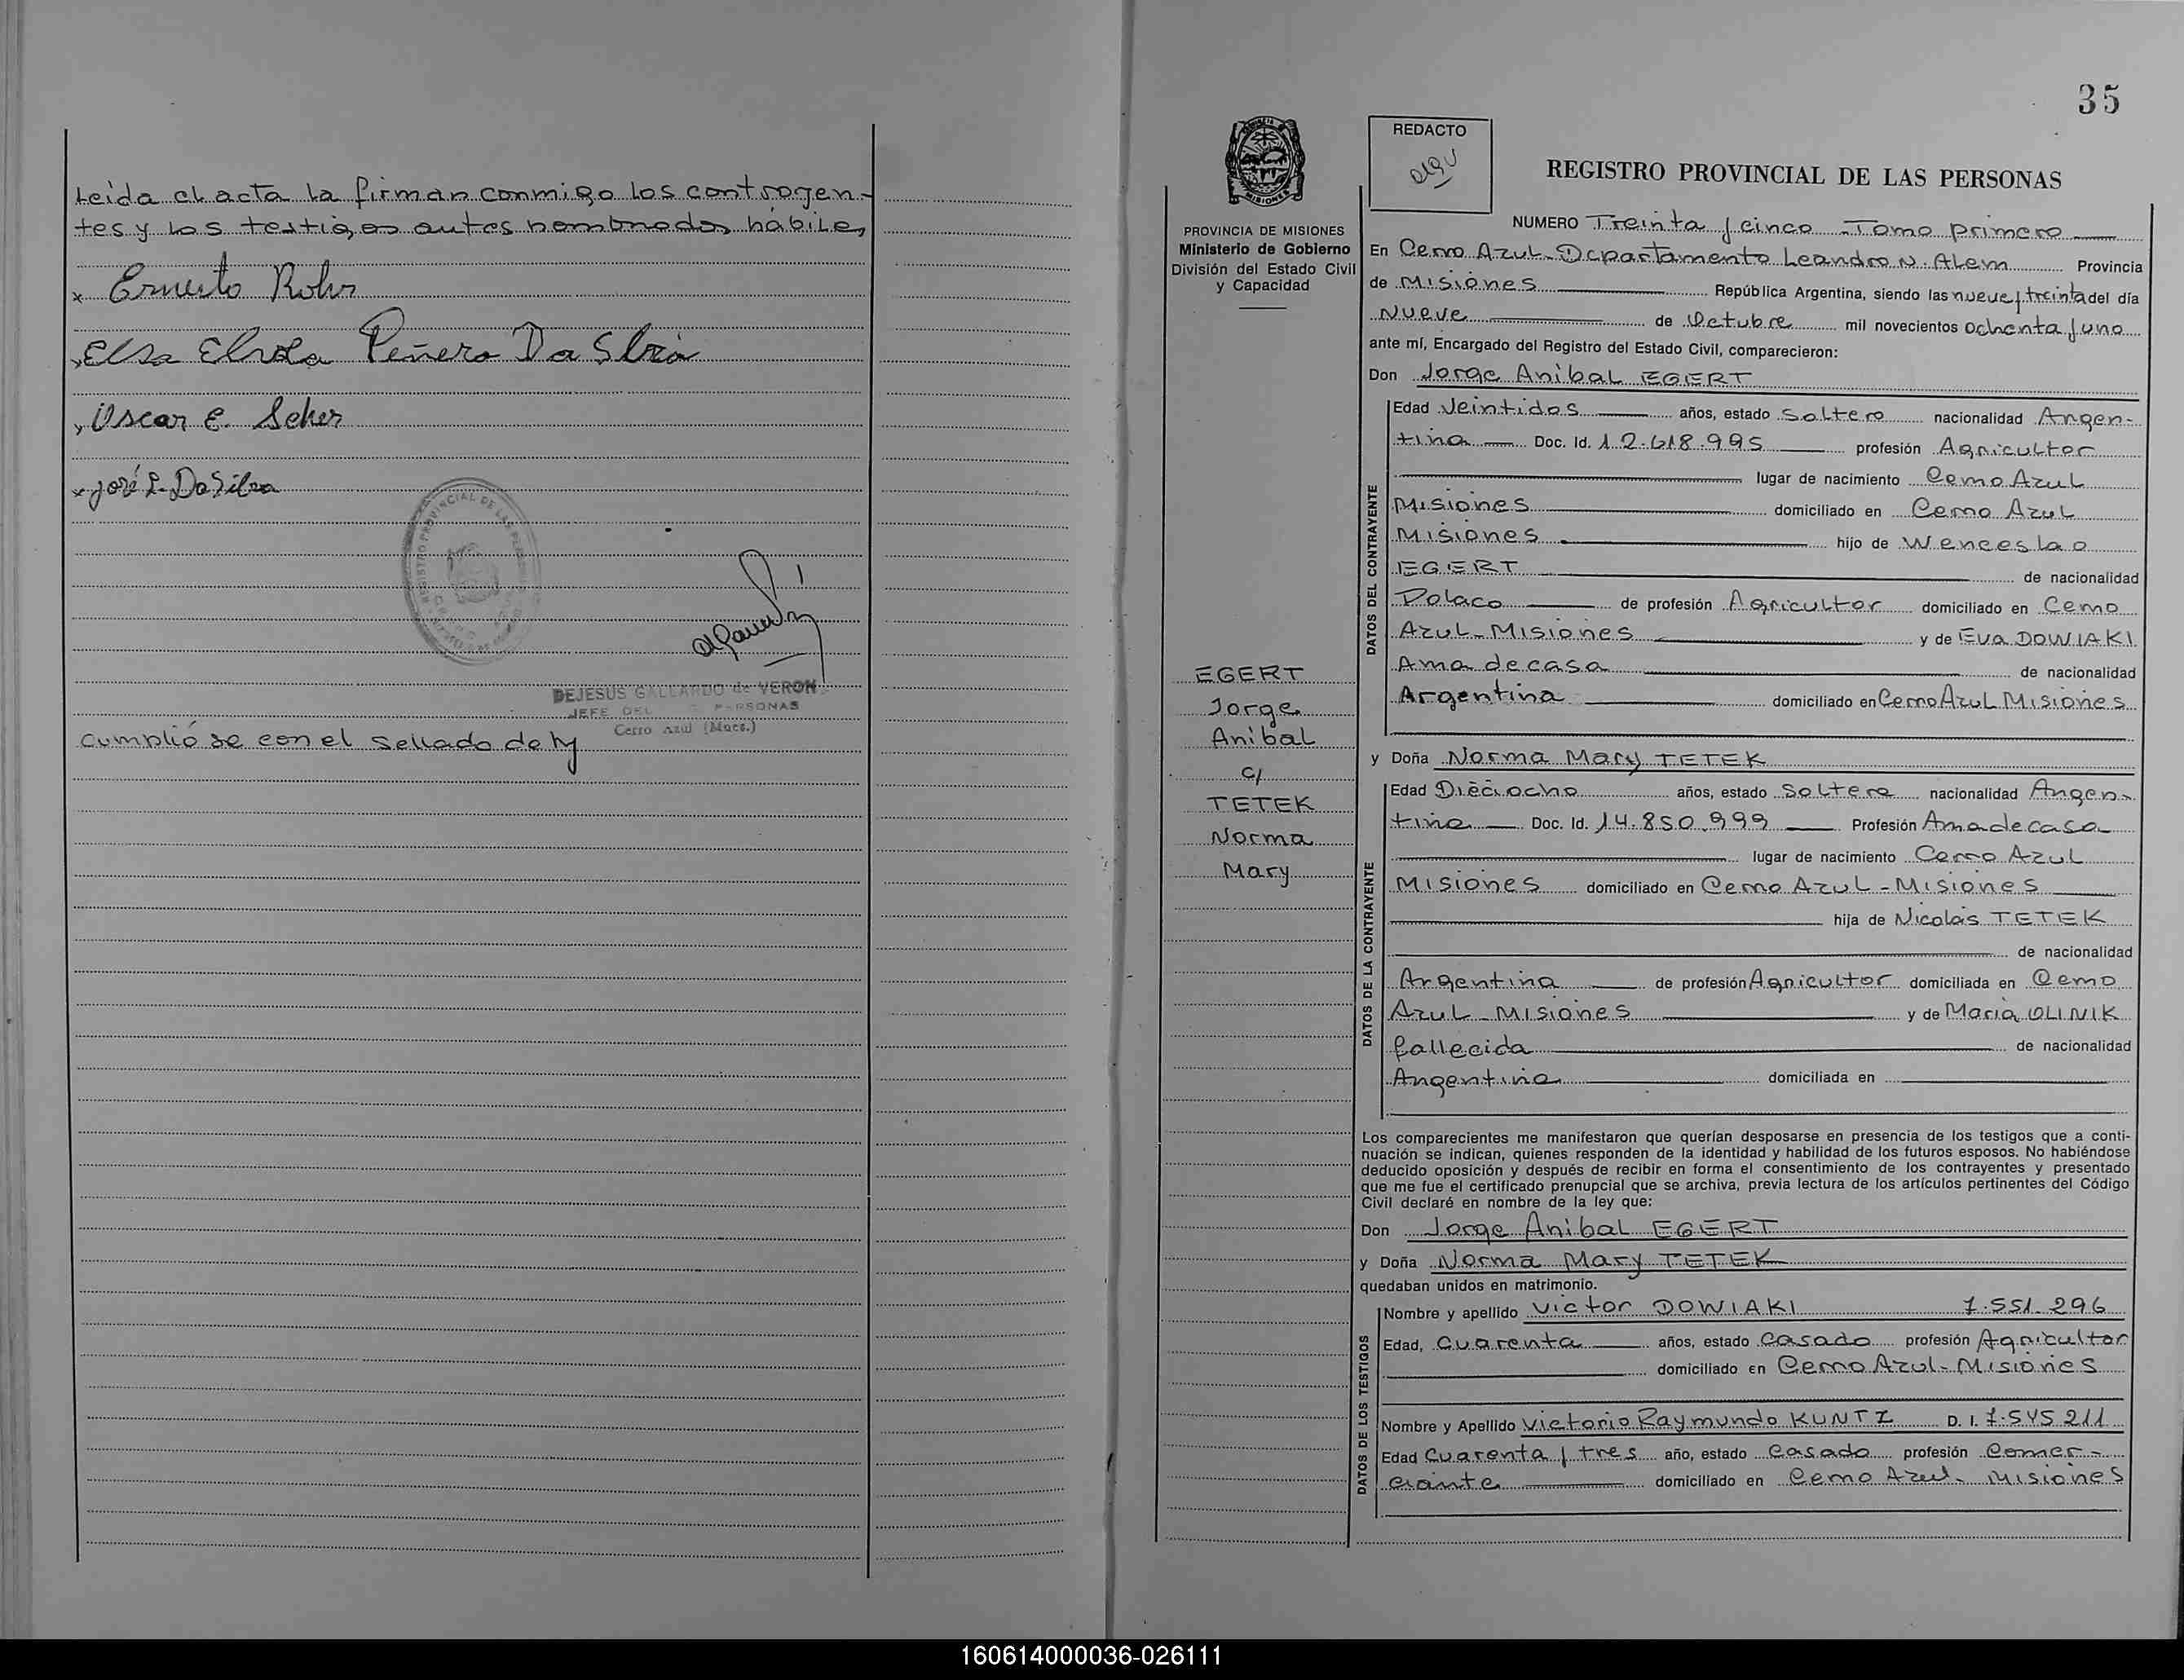 Leída el acta la firman conmigo los contrayen-
tes y los testigos antes nombrados hábiles
x Ernesto Rohr
Elsa Elvola Peñera Da Silva
Oscar E. Scher
x José L. Da Silva
REGISTRO PROVINCIAL DE LAS PERSONAS
DEJESUS GALLARDO de VERON
JEFE DEL PERSONAS
Cerro Azul (Mnes.)
Cumplió se con el sellado de ley
35
REDACTO
REGISTRO PROVINCIAL DE LAS PERSONAS
PROVINCIA DE MISIONES
Ministerio de Gobierno
División del Estado Civil
y Capacidad
EGERT
Jorge
Anibal
c/
TETEK
Norma
Mary
NUMERO Treinta y cinco - Tomo primero
En Cerro Azul - Departamento Leandro N. Alem Provincia
de Misiones República Argentina, siendo las nueve y treinta del día
Nueve de Octubre mil novecientos ochenta y uno
ante mí, Encargado del Registro del Estado Civil, comparecieron:
Don Jorge Anibal EGERT
DATOS DEL CONTRAYENTE
Edad Veintidos años, estado Soltero nacionalidad Argen-
tina Doc. Id. 12.618.995 profesión Agricultor
lugar de nacimiento Cerro Azul
Misiones domiciliado en Cerro Azul
Misiones hijo de Wenceslao
EGERT de nacionalidad
Polaco de profesión Agricultor domiciliado en Cerro
Azul - Misiones y de Eva DOWIAKI
Ama de casa de nacionalidad
Argentina domiciliado en Cerro Azul Misiones
y Doña Norma Mary TETEK
DATOS DE LA CONTRAYENTE
Edad Dieciocho años, estado Soltera nacionalidad Argen-
tina Doc. Id. 14.850.999 Profesión Ama de casa
lugar de nacimiento Cerro Azul
Misiones domiciliado en Cerro Azul - Misiones
hija de Nicolás TETEK
de nacionalidad
Argentina de profesión Agricultor domiciliada en Cerro
Azul - Misiones y de María OLINIK
fallecida de nacionalidad
Argentina domiciliada en
Los comparecientes me manifestaron que querían desposarse en presencia de los testigos que a conti-
nuación se indican, quienes responden de la identidad y habilidad de los futuros esposos. No habiéndose
deducido oposición y después de recibir en forma el consentimiento de los contrayentes y presentado
que me fue el certificado prenupcial que se archiva, previa lectura de los artículos pertinentes del Código
Civil declaré en nombre de la ley que:
Don Jorge Anibal EGERT
y Doña Norma Mary TETEK
quedaban unidos en matrimonio.
DATOS DE LOS TESTIGOS
Nombre y apellido Victor DOWIAKI 7.551.296
Edad, Cuarenta años, estado Casado profesión Agricultor
domiciliado en Cerro Azul - Misiones
Nombre y Apellido Victorio Raymundo KUNTZ D. I. 7.545.211
Edad Cuarenta y tres año, estado Casado profesión Comer-
ciante domiciliado en Cerro Azul - Misiones
160614000036-026111